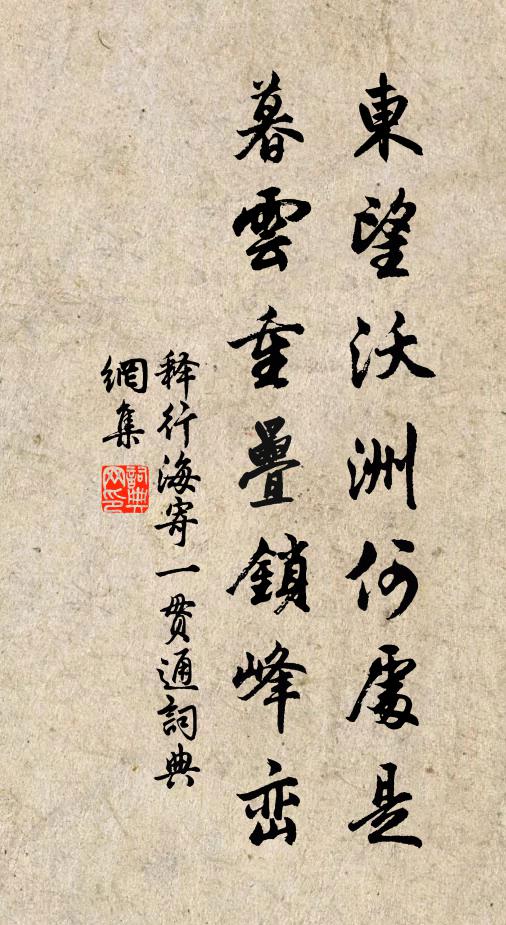 東望沃洲何處是
暮雲重疊鎖峰峦
释行海寄一贯通詞典
網集
詞典
网印